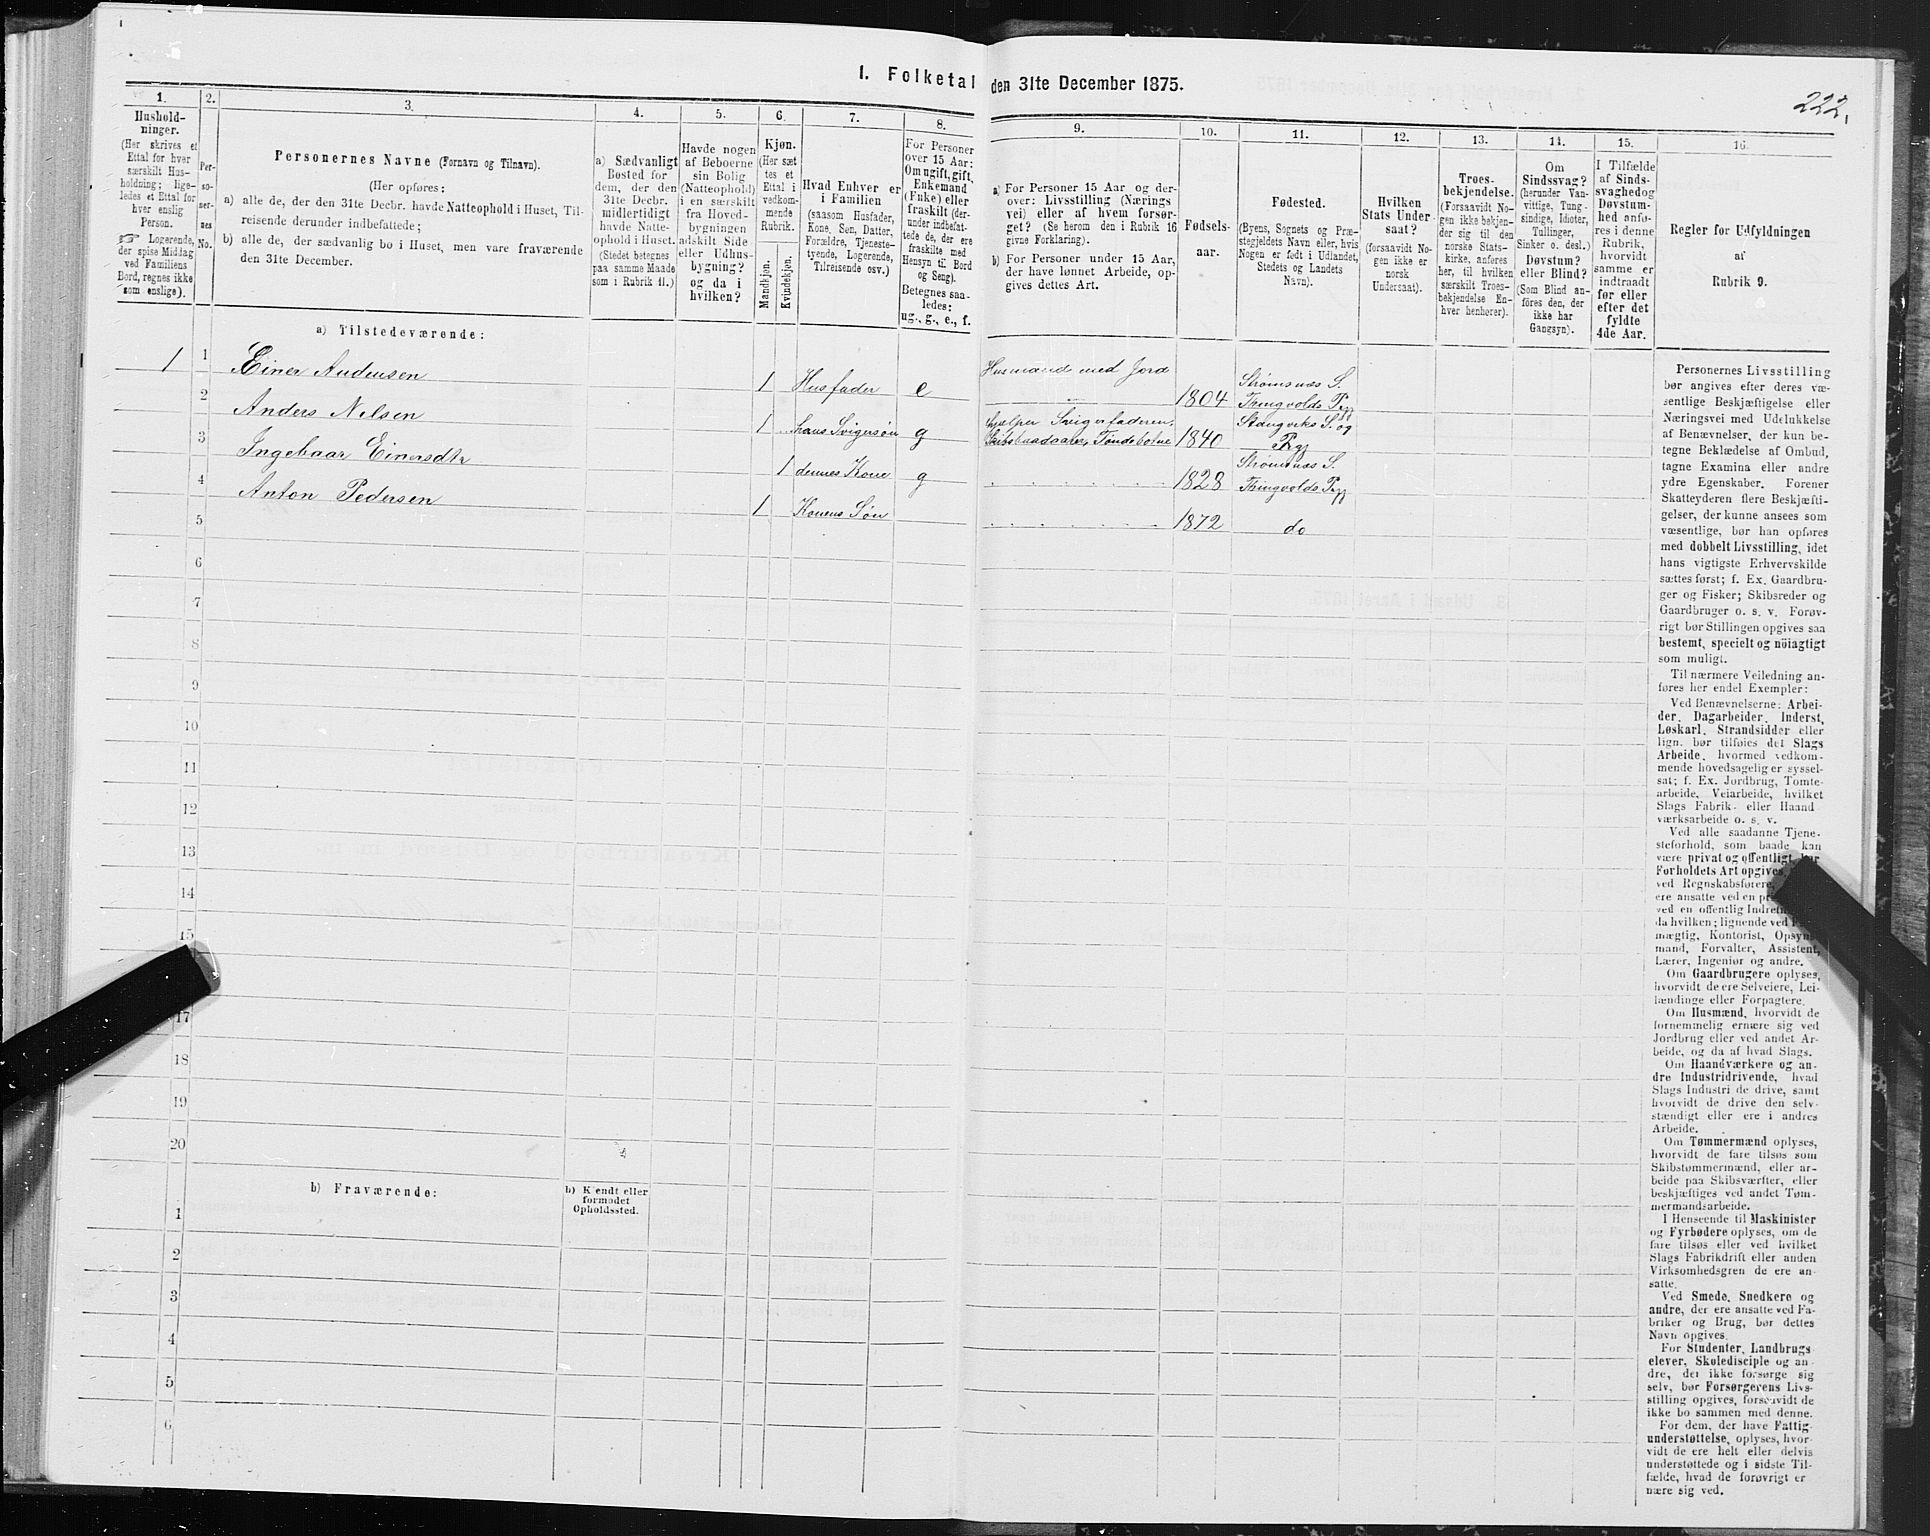 I. Folketal den 31te December 1875.
222.
1.
Hushold-
ninger.
(Her skrives et
Ettal for hver
særskilt Hus-
holdning; lige-
ledes et Ettal for
hver enslig
Person.
☞ Logerende,
der spise Middag
ved Familiens
Bord, regnes ikke
som enslige).
2.
Per-
so-
ner-
nes
No.
3.
Personernes Navne (Fornavn og Tilnavn).
(Her opføres:
a) alle de, der den 31te Decbr. havde Natteophold i Huset, Til-
reisende derunder indbefattede;
b) alle de, der sædvanlig bo i Huset, men vare fraværende
den 31te December.
4.
a) Sædvanligt
Bosted for
dem, der den
31te Decbr.
midlertidigt
havde Natte-
ophold i Huset.
(Stedet betegnes
paa samme Maade
som i Rubrik 11.)
5.
Havde nogen
af Beboerne
sin Bolig
(Natteophold)
i en særskilt
fra Hoved-
bygningen
adskilt Side
eller Udhus-
bygning?
og da i
hvilken?
6.
Kjøn.
(Her sæt
tes et
Ettal i
vedkom-
mende
Rubrik.
Mandkjøn.
Kvindekjøn.
7.
Hvad Enhver er
i Familien
(saasom Husfader,
Kone, Søn, Datter,
Forældre, Tjeneste-
tyende, Logerende,
Tilreisende osv.)
8.
For Personer
over 15 Aar:
Om ugift, gift,
Enkemand
(Enke) eller
fraskilt (der-
under indbefat-
tede de, der ere
fraskilte med
Hensyn til Bord
og Seng).
Betegnes saa-
ledes:
ug., g., e., f.
9.
a) For Personer 15 Aar og der-
over: Livsstilling (Nærings
vei) eller af hvem forsør-
get? (Se herom den i Rubrik 16
givne Forklaring).
b) For Personer under 15 Aar,
der have lønnet Arbeide, op-
gives dettes Art.
10.
Fødsels-
aar.
11.
Fødested.
(Byens, Sognets og Præ-
stegjeldets Navn eller, hvis
Nogen er født i Udlandet,
Stedets og Landets
Navn).
12.
Hvilken
Stats Under-
saat?
(forsaavidt No-
gen ikke er
norsk
Undersaat).
13.
Troes-
bekjendelse.
(Forsaavidt No-
gen ikke bekjen-
der sig til den
norske Stats-
kirke, anføres
her, til hvilken
særskilt Troes-
bekjendelse En-
hver henhører).
14.
Om
Sindssvag?
(herunder Van-
vittige, Tung-
sindige, Idioter,
Tullinger,
Sinker o. desl.)
Døvstum?
eller Blind?
(Som Blind an-
føres den, der
ikke har
Gangsyn).
15.
I Tilfælde
af Sinds-
svaghed og
Døvstum-
hed anfø-
res i denne
Rubrik,
hvorvidt
samme er
indtraadt
før eller
efter det
fyldte
4de Aar.
16.
Regler for Udfyldningen
af
Rubrik 9.
a) Tilstedeværende:
1 1 Einer Andersen 1 Husfader e Husmand med Jord 1804 Strømsnæs S.
Thingvolds Pgj
2 Anders Nilsen 1 hans Svigersøn g hjælper Svigerfaderen, 1840 Stangviks S. og
Pgj
3 Ingebaar Einersdtr 1 dennes Kone g 1828 Strømsnæs S.
Thingvolds Pgj
4 Anton Pedersen 1 Konens Søn 1872 do
5
6
7
8
9
10
11
12
13
14
15
17
18
19
20
b) Fraværende:
b) Kjendt eller
formodet
Opholdssted.
1
2
3
4
5
6
Personernes Livsstilling
bør angives efter deres væ-
sentlige Beskjæftigelse eller
Næringsvei med Udelukkelse
af Benævnelser, der kun be-
tegne Beklædelse af Ombud,
tagne Examina eller andre
ydre Egenskaber. Forener
Skatteyderen flere Beskjæfti-
gelser, der kunne ansees som
væsentlige, bør han opføres
med dobbelt Livsstilling, idet
hans vigtigste Erhvervskilde
sættes først; f. Ex. Gaardbru-
ger og Fisker; Skibsreder og
Gaardbruger o. s. v. Forøv-
rigt bør Stillingen opgives saa
bestemt, specielt og nöiagtigt
som muligt.
Til nærmere Veiledning an-
føres her endel Exempler:
Ved Benævnelserne: Arbei-
der, Dagarbeider, Inderst,
Løskarl, Strandsidder eller
lign. bør tilføies det Slags
Arbeide, hvormed vedkom-
mende hovedsagelig er syssel-
sat; f. Ex. Jordbrug, Tomte-
arbeide, Veiarbeide, hvilket
Slags Fabrik- eller Haand-
værksarbeide o. s. v.
Ved alle saadanne Tjene-
steforhold, som baade kan
være privat og offentligt, bør
Forholdets Art opgives,
ved Regnskabsførere,
ere ansatte ved en
ved en offentlig
da hvilken; lignende ved
mægtig, Kontorist,
mand, Forvalter, Assistent,
Lærer, Ingeniør og andre.
Om Gaardbrugere oplyses,
hvorvidt de ere Selveiere, Lei-
lændinge eller Forpagtere.
Om Husmænd, hvorvidt de
fornemmelig ernære sig ved
Jordbrug eller ved andet Ar-
beide, og da af hvad Slags.
Om Haandværkere og an-
dre Industridrivende, hvad
Slags Industri de drive, samt
hvorvidt de drive den selv-
stændigt eller ere i andres
Arbeide.
Om Tømmermænd oplyses,
hvorvidt de fare tilsøs som
Skibstømmermænd, eller ar-
beide paa Skibsværfter, eller
beskjæftiges ved andet Tøm-
mermandsarbeide.
I Henseende til Maskinister
og Fyrbødere oplyses, om de
fare tilsøs eller ved hvilket
Slags Fabrikdrift eller anden
Virksomhedsgren de ere an-
satte.
Ved Smede, Snedkere og
andre, der ere ansatte ved Fa-
briker og Brug, bør dettes
Navn opgives.
For Studenter, Landbrugs-
elever, Skoledisciple og an-
dre, der ikke forsørge sig
selv, bør Forsørgerens Livs-
stilling opgives, forsaavidt de
ikke bo sammen med denne.
For dem, der have Fattig-
understøttelse, oplyses, hvor-
vidt de ere helt eller delvis
understøttede og i sidste Til-
fælde, hvad de forøvrigt er
nære sig ved.